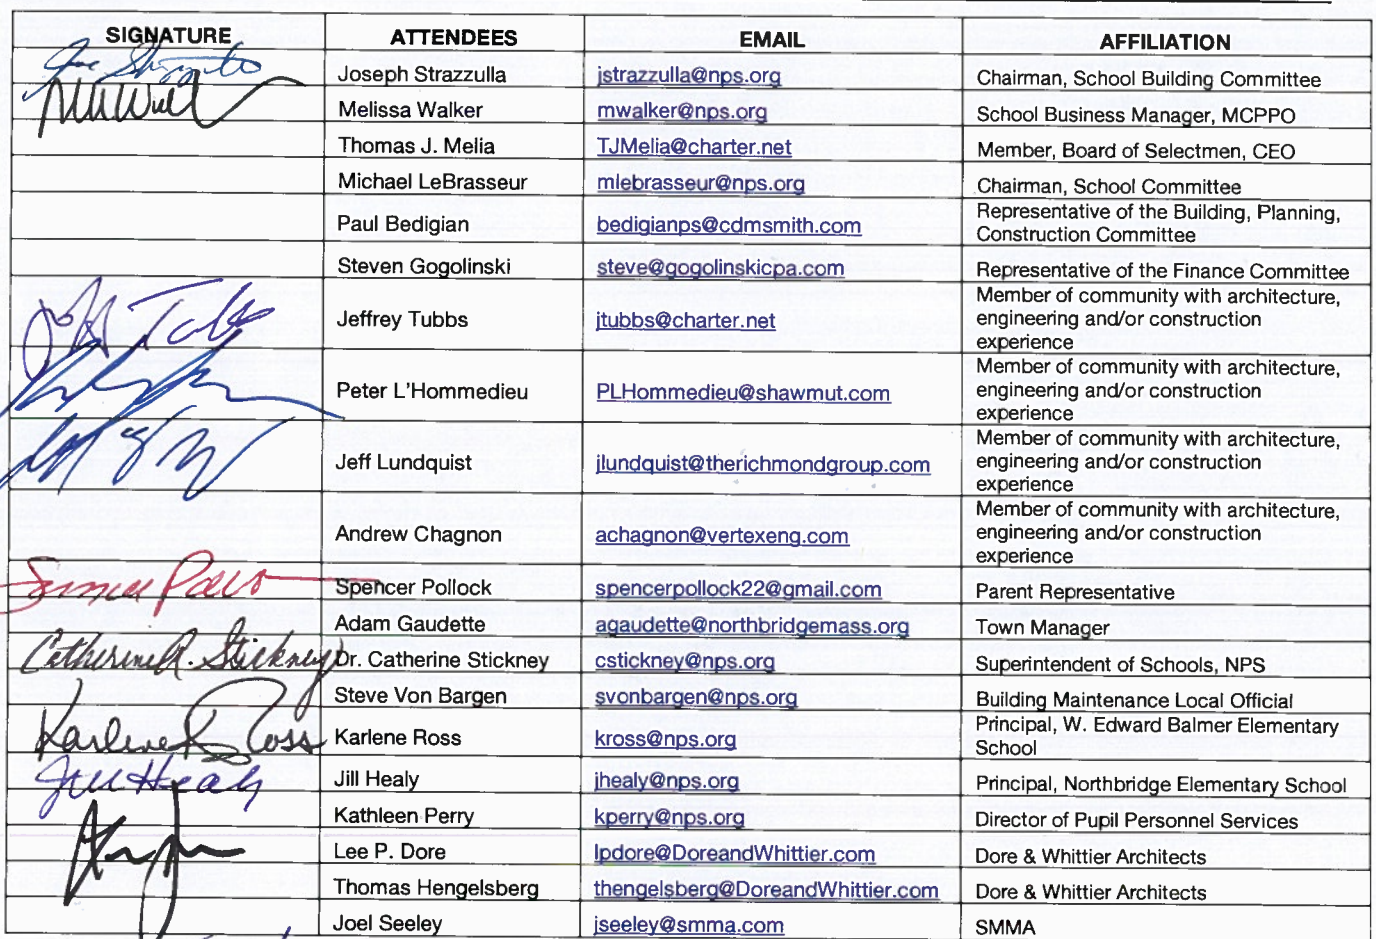 SIGNATURE ATTENDEES EMAIL AFFILIATION
Joseph Strazzulla jstrazzulla@nps.org Chairman, School Building Committee
Melissa Walker mwalker@nps.org School Business Manager, MCPPO
Thomas J. Melia TJMelia@charter.net Member, Board of Selectmen, CEO
Michael LeBrasseur mlebrasseur@nps.org Chairman, School Committee
Paul Bedigian bedigianps@cdmsmith.com Representative of the Building, Planning,
Construction Committee
Steven Gogolinski steve@gogolinskicpa.com Representative of the Finance Committee
Jeffrey Tubbs jtubbs@charter.net Member of community with architecture,
engineering and/or construction
experience
Peter L'Hommedieu PLHommedieu@shawmut.com Member of community with architecture,
engineering and/or construction
experience
Jeff Lundquist jlundquist@therichmondgroup.com Member of community with architecture,
engineering and/or construction
experience
Andrew Chagnon achagnon@vertexeng.com Member of community with architecture,
engineering and/or construction
experience
Spencer Pollock spencerpollock22@gmail.com Parent Representative
Adam Gaudette agaudette@northbridgemass.org Town Manager
Catherine A. Stickney Dr. Catherine Stickney cstickney@nps.org Superintendent of Schools, NPS
Steve Von Bargen svonbargen@nps.org Building Maintenance Local Official
Karlene R Ross Karlene Ross kross@nps.org Principal, W. Edward Balmer Elementary
School
Jill Healy Jill Healy jhealy@nps.org Principal, Northbridge Elementary School
Kathleen Perry kperry@nps.org Director of Pupil Personnel Services
Lee P. Dore lpdore@DoreandWhittier.com Dore & Whittier Architects
Thomas Hengelsberg thengelsberg@DoreandWhittier.com Dore & Whittier Architects
Joel Seeley jseeley@smma.com SMMA